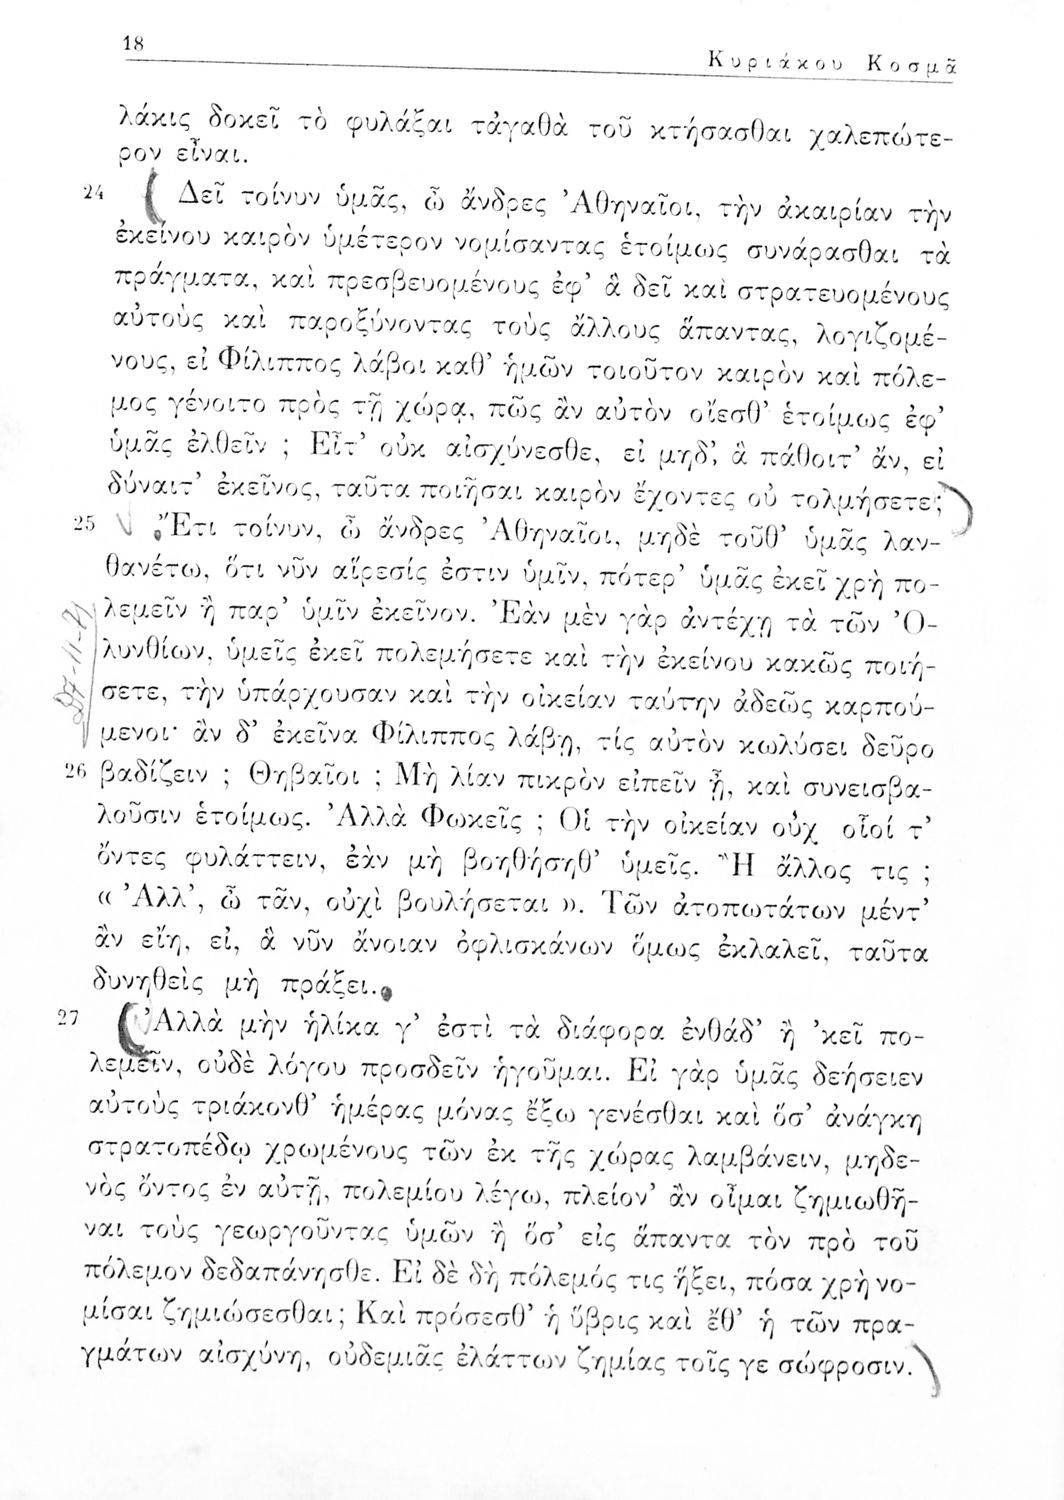 18
Κυριάκου Κοσμᾶ
λάκις δοκεῖ τὸ φυλάξαι τἀγαθὰ τοῦ κτήσασθαι χαλεπώτε-
ρον εἶναι.
24 Δεῖ τοίνυν ὑμᾶς, ὦ ἄνδρες Ἀθηναῖοι, τὴν ἀκαιρίαν τὴν
ἐκείνου καιρὸν ὑμέτερον νομίσαντας ἑτοίμως συνάρασθαι τὰ
πράγματα, καὶ πρεσβευομένους ἐφ’ ἃ δεῖ καὶ στρατευομένους
αὐτοὺς καὶ παροξύνοντας τοὺς ἄλλους ἅπαντας, λογιζομέ-
νους, εἰ Φίλιππος λάβοι καθ’ ἡμῶν τοιοῦτον καιρὸν καὶ πόλε-
μος γένοιτο πρὸς τῇ χώρᾳ, πῶς ἂν αὐτὸν οἴεσθ’ ἑτοίμως ἐφ’
ὑμᾶς ἐλθεῖν ; Εἶτ’ οὐκ αἰσχύνεσθε, εἰ μηδ’, ἃ πάθοιτ’ ἄν, εἰ
δύναιτ’ ἐκεῖνος, ταῦτα ποιῆσαι καιρὸν ἔχοντες οὐ τολμήσετε;
25 Ἔτι τοίνυν, ὦ ἄνδρες Ἀθηναῖοι, μηδὲ τοῦθ’ ὑμᾶς λαν-
θανέτω, ὅτι νῦν αἵρεσίς ἐστιν ὑμῖν, πότερ’ ὑμᾶς ἐκεῖ χρὴ πο-
λεμεῖν ἢ παρ’ ὑμῖν ἐκεῖνον. Ἐὰν μὲν γὰρ ἀντέχῃ τὰ τῶν Ὀ-
λυνθίων, ὑμεῖς ἐκεῖ πολεμήσετε καὶ τὴν ἐκείνου κακῶς ποιή-
σετε, τὴν ὑπάρχουσαν καὶ τὴν οἰκείαν ταύτην ἀδεῶς καρπού-
μενοι· ἂν δ’ ἐκεῖνα Φίλιππος λάβῃ, τίς αὐτὸν κωλύσει δεῦρο
26 βαδίζειν ; Θηβαῖοι ; Μὴ λίαν πικρὸν εἰπεῖν ᾖ, καὶ συνεισβα-
λοῦσιν ἑτοίμως. Ἀλλὰ Φωκεῖς ; Οἱ τὴν οἰκείαν οὐχ οἷοί τ’
ὄντες φυλάττειν, ἐὰν μὴ βοηθήσηθ’ ὑμεῖς. Ἢ ἄλλος τις ;
« Ἀλλ’, ὦ τᾶν, οὐχὶ βουλήσεται ». Τῶν ἀτοπωτάτων μέντ’
ἂν εἴη, εἰ, ἃ νῦν ἄνοιαν ὀφλισκάνων ὅμως ἐκλαλεῖ, ταῦτα
δυνηθεὶς μὴ πράξει.
27 Ἀλλὰ μὴν ἡλίκα γ’ ἐστὶ τὰ διάφορα ἐνθάδ’ ἢ ’κεῖ πο-
λεμεῖν, οὐδὲ λόγου προσδεῖν ἡγοῦμαι. Εἰ γὰρ ὑμᾶς δεήσειεν
αὐτοὺς τριάκονθ’ ἡμέρας μόνας ἔξω γενέσθαι καὶ ὅσ’ ἀνάγκη
στρατοπέδῳ χρωμένους τῶν ἐκ τῆς χώρας λαμβάνειν, μηδε-
νὸς ὄντος ἐν αὐτῇ, πολεμίου λέγω, πλείον’ ἂν οἶμαι ζημιωθῆ-
ναι τοὺς γεωργοῦντας ὑμῶν ἢ ὅσ’ εἰς ἅπαντα τὸν πρὸ τοῦ
πόλεμον δεδαπάνησθε. Εἰ δὲ δὴ πόλεμός τις ἥξει, πόσα χρὴ νο-
μίσαι ζημιώσεσθαι; Καὶ πρόσεσθ’ ἡ ὕβρις καὶ ἔθ’ ἡ τῶν πρα-
γμάτων αἰσχύνη, οὐδεμιᾶς ἐλάττων ζημίας τοῖς γε σώφροσιν.